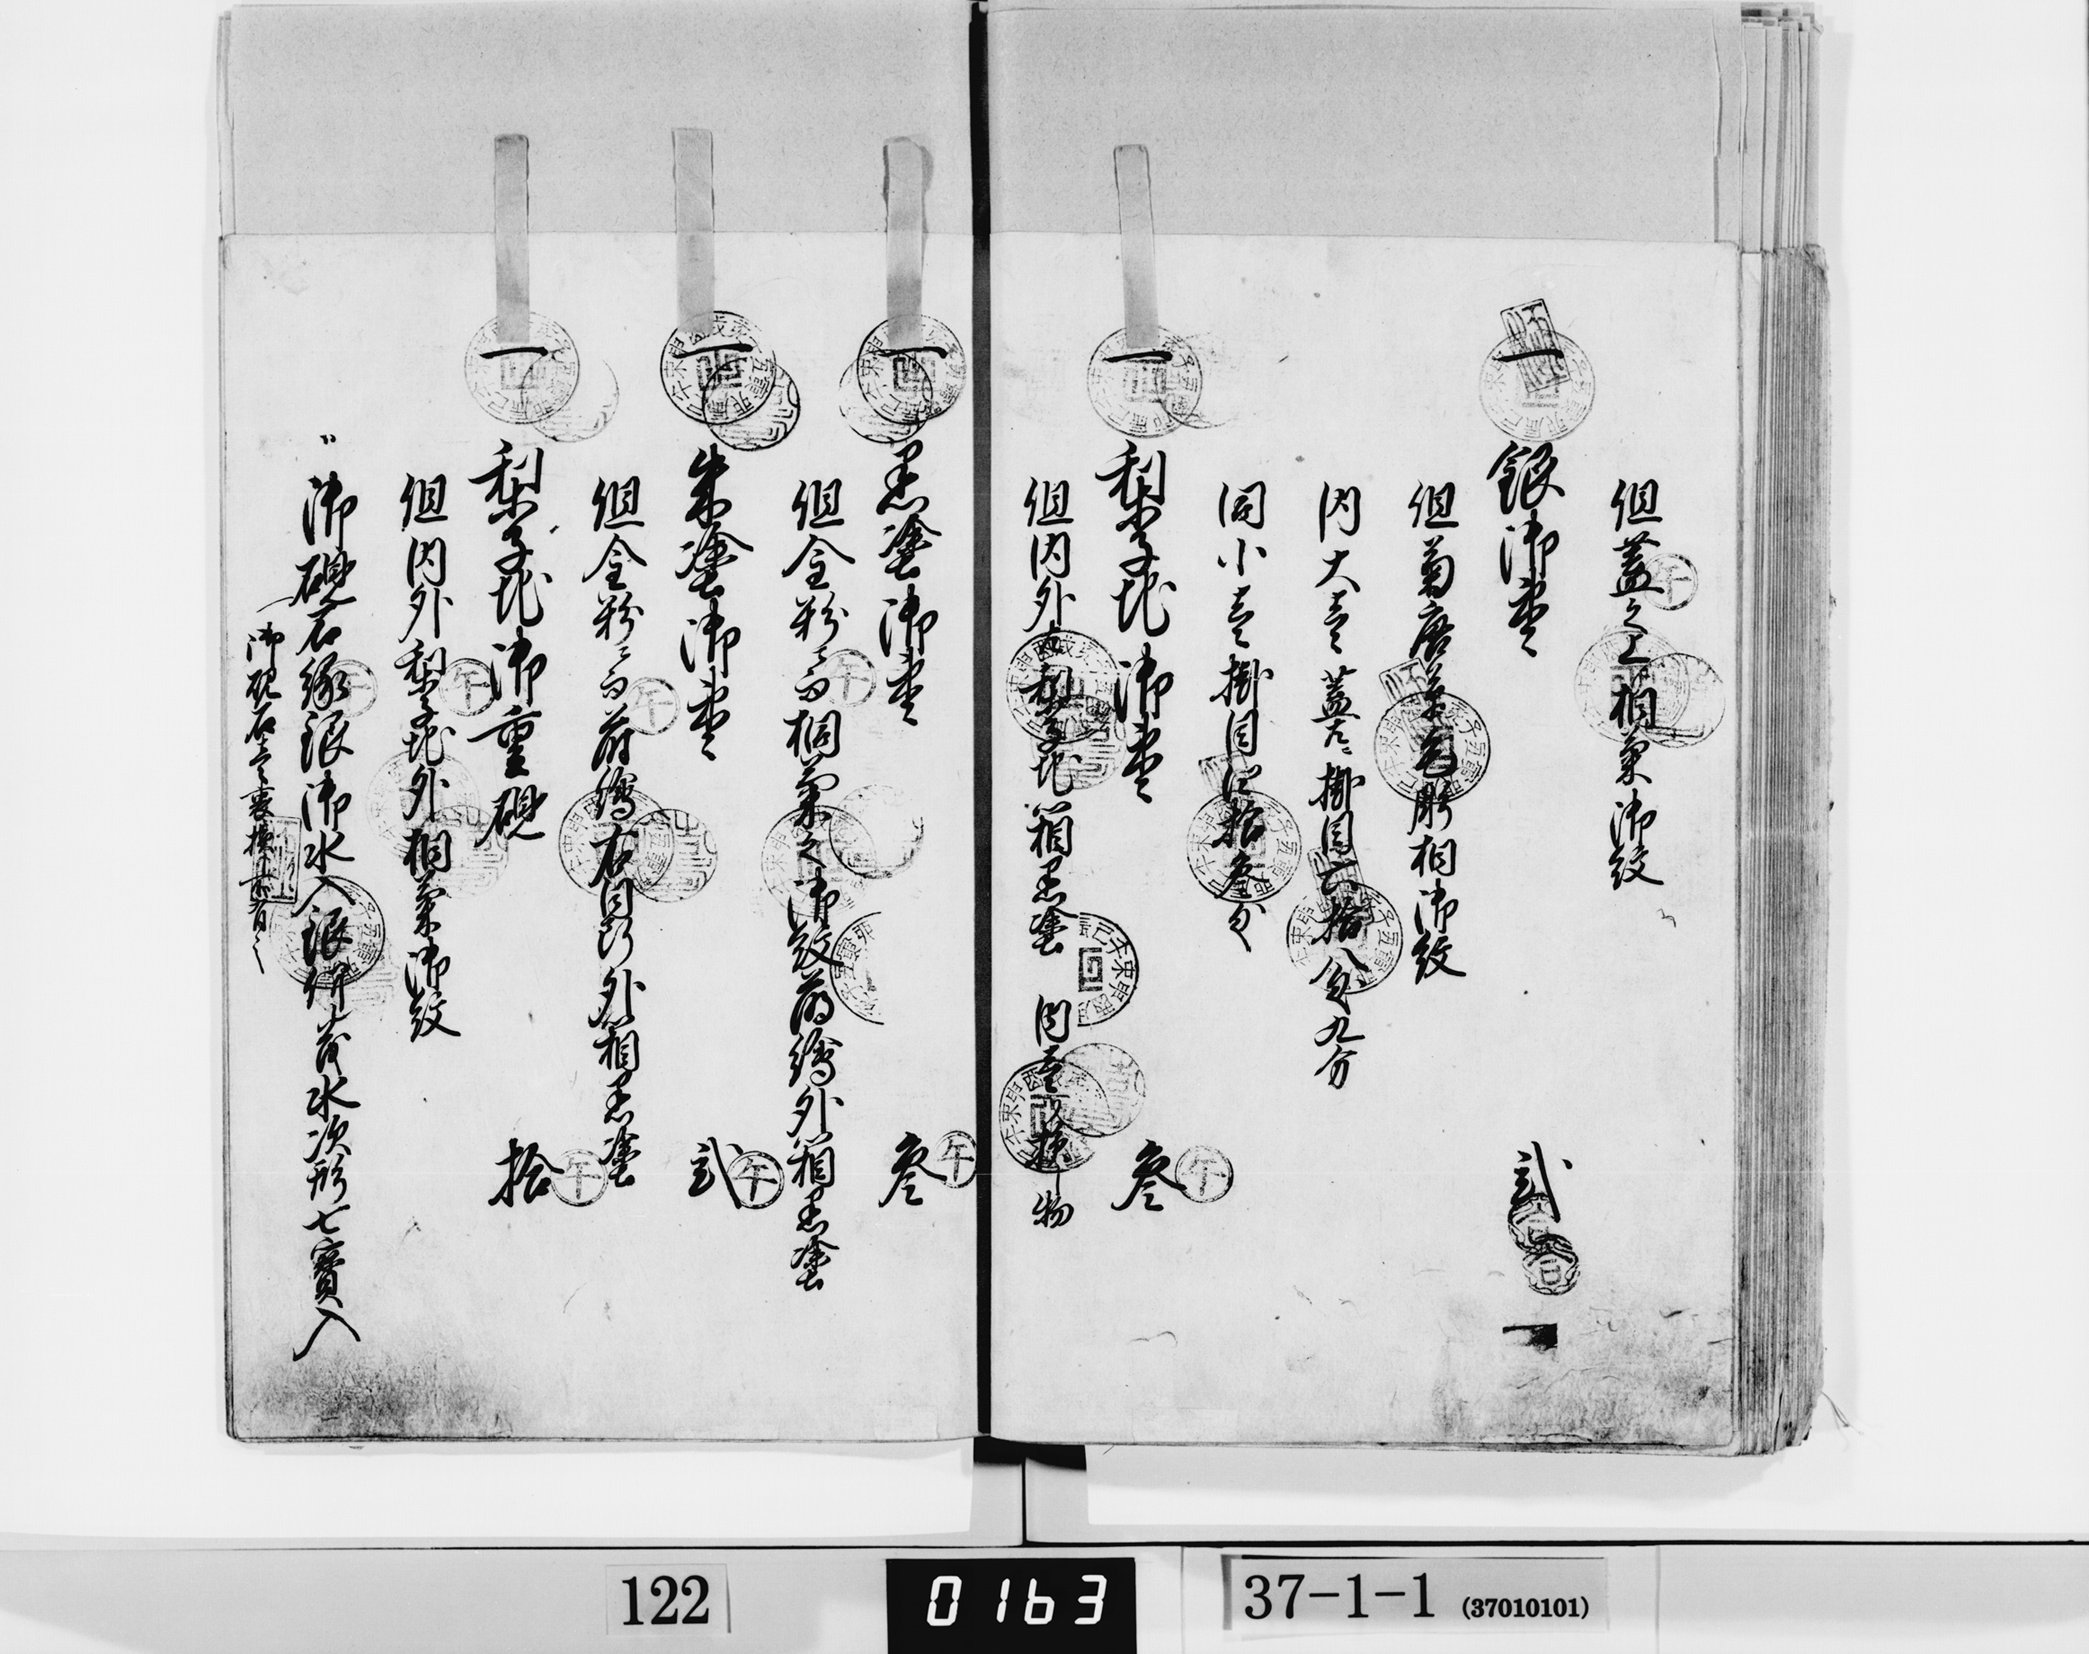 但蓋之上桐菊御紋
一 銀御棗 弐
但菊唐草毛彫桐御紋
内大壱 蓋共ニ掛目六拾八匁九分
同小壱 掛目四拾参匁
一 梨子地御棗 参
但内外共梨子地箱黒塗 内壱 挽物
一 黒塗御棗 参
但金粉ニ而桐菊之御紋蒔絵外箱黒塗
一 朱塗御棗 弐
但金粉ニ而蒔絵右同断外箱黒塗
一 梨子地御重硯 拾
但内外梨子地外桐菊御紋
〃 御硯石縁銀御水入銀餅茂水次形七寳入
御硯石壱裏損シ有之
午
午
午
午
午
午
午
午
午
122
0163
37-1-1 (37010101)